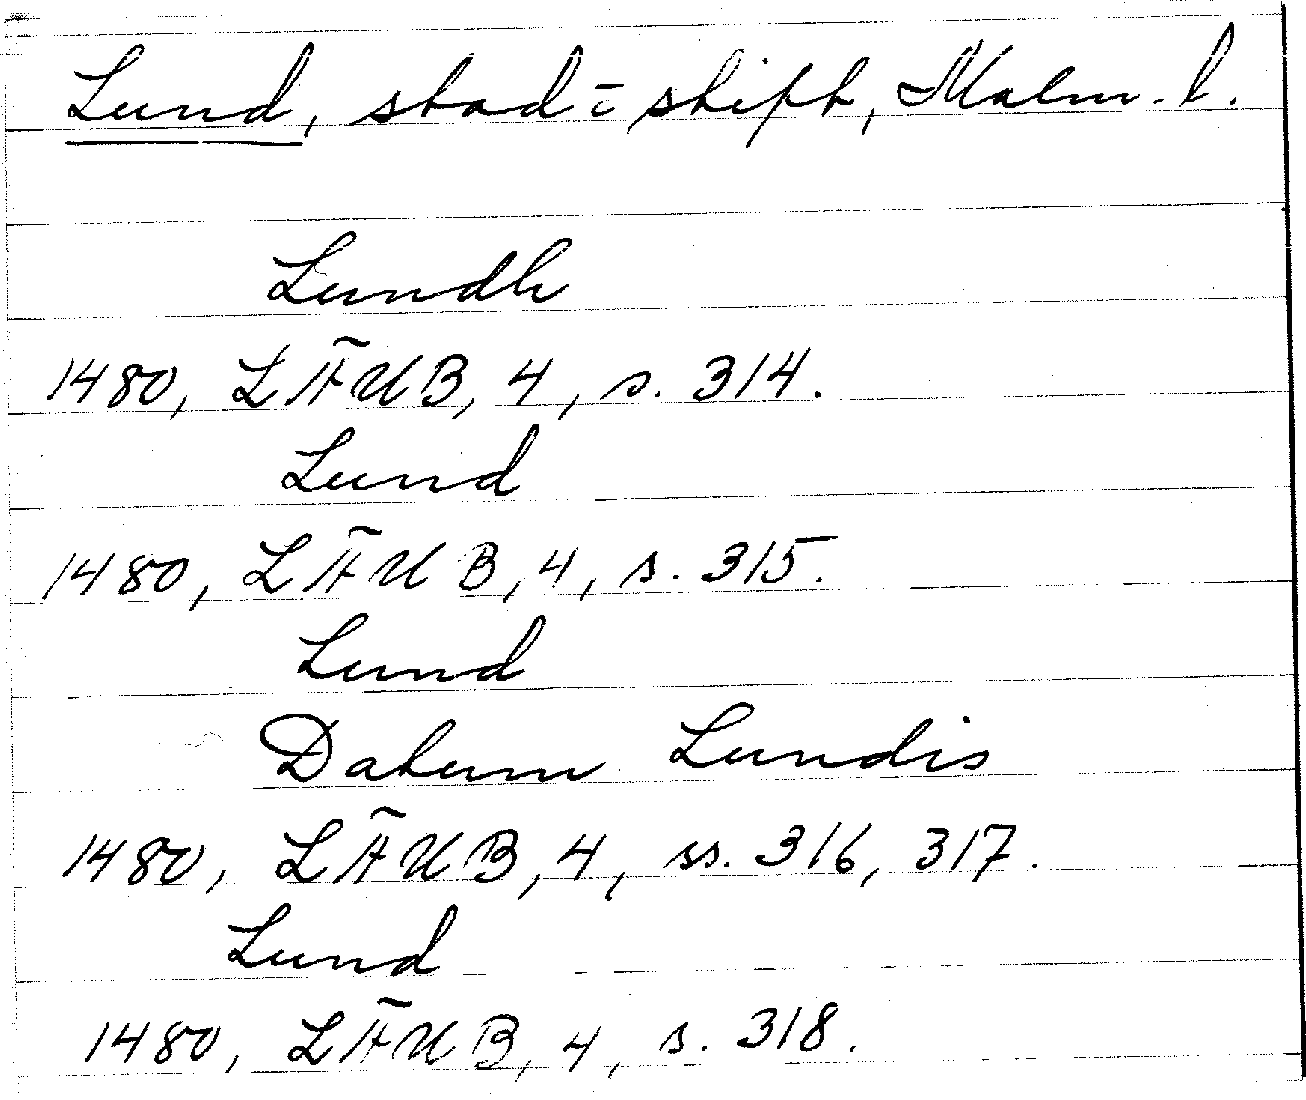 Lund, stad = stift, Malm. l.
Lundh
1480, LÄUB, 4, s. 314.
Lund
1480, LÄUB, 4, s. 315.
Lund
Datum Lundis
1480, LÄUB, 4, ss. 316, 317.
Lund
1480, LÄUB, 4, s. 318.